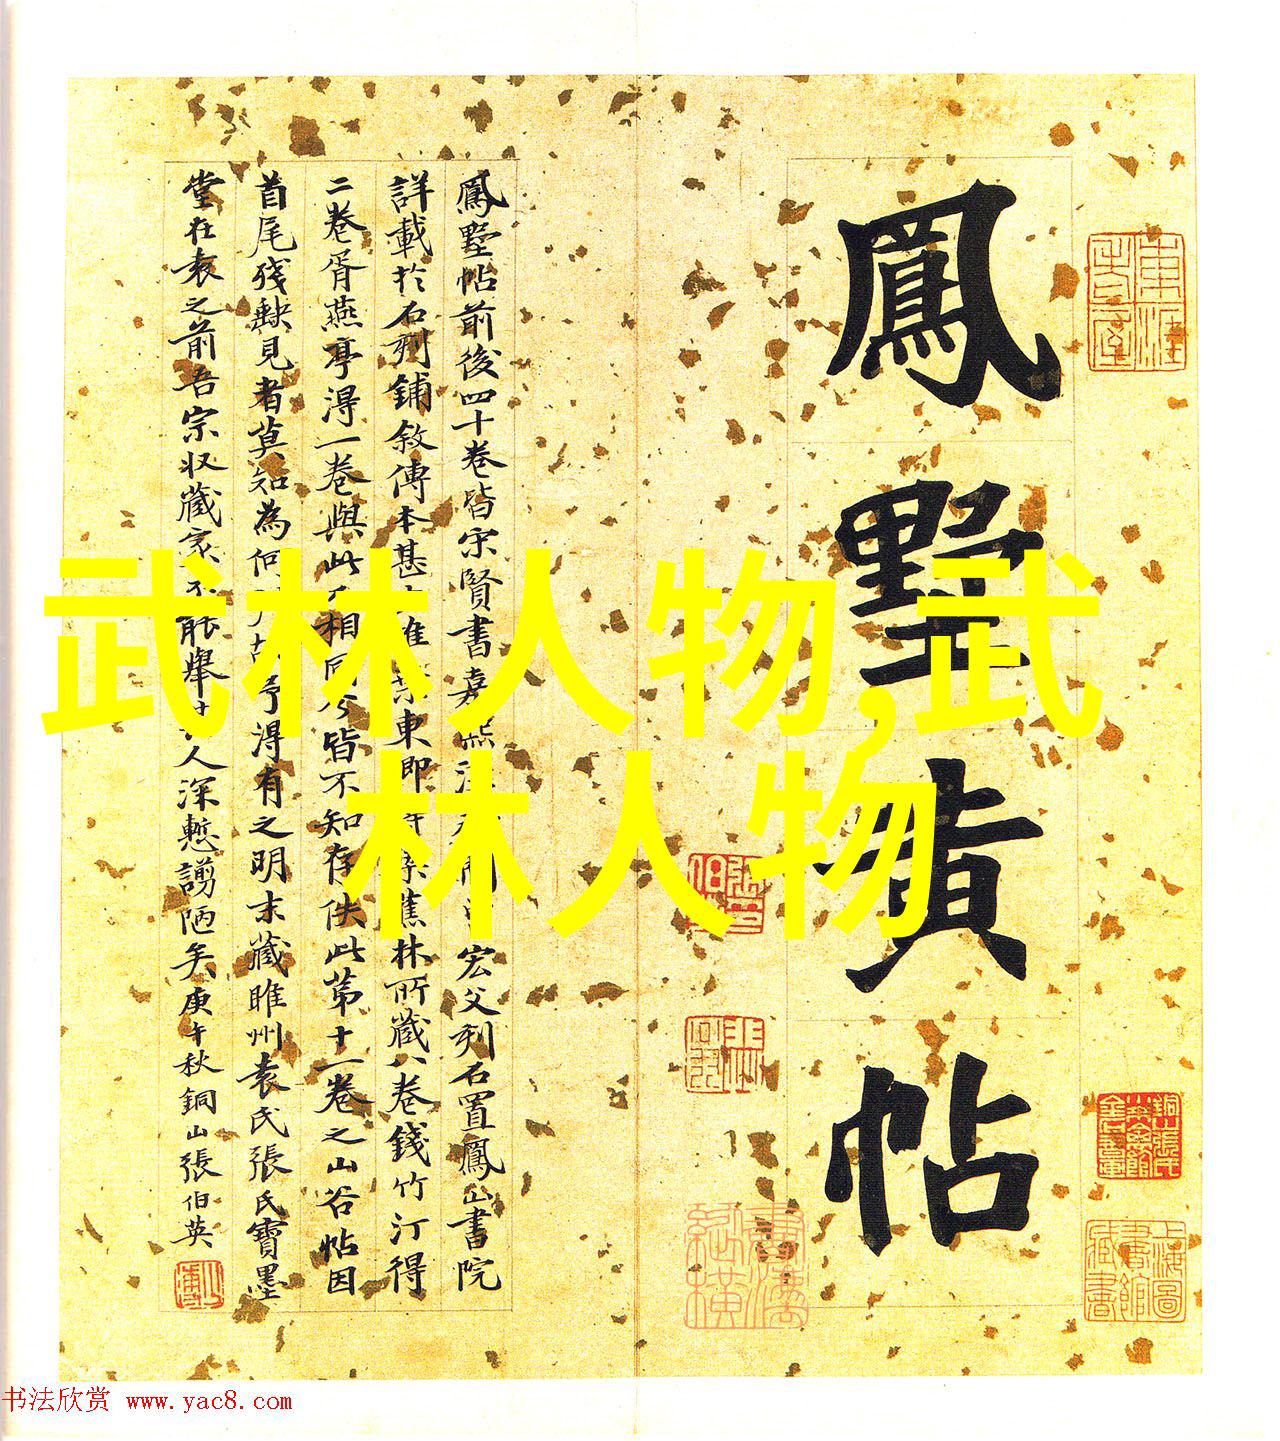 鳳墅黃帖
鳳墅帖前後四十卷皆宋賢書嘉熙淳宏父刋石置鳳山書院
詳載於石刋鋪敘傳本甚東即蕉林所藏八卷錢竹汀得
二卷胥燕亭淂一卷與此相同皆不知存佚此第十一卷之山谷帖因
首尾殘缺見者莫知為何予淂有之明末藏睢州袁氏張氏寶墨
堂在袁之前吾宗収藏家不能舉其人深慙謭陋矣庚午秋銅山張伯英
武林人物,武
林人物
上海圖書館藏書
书法欣赏 www.yac8.com